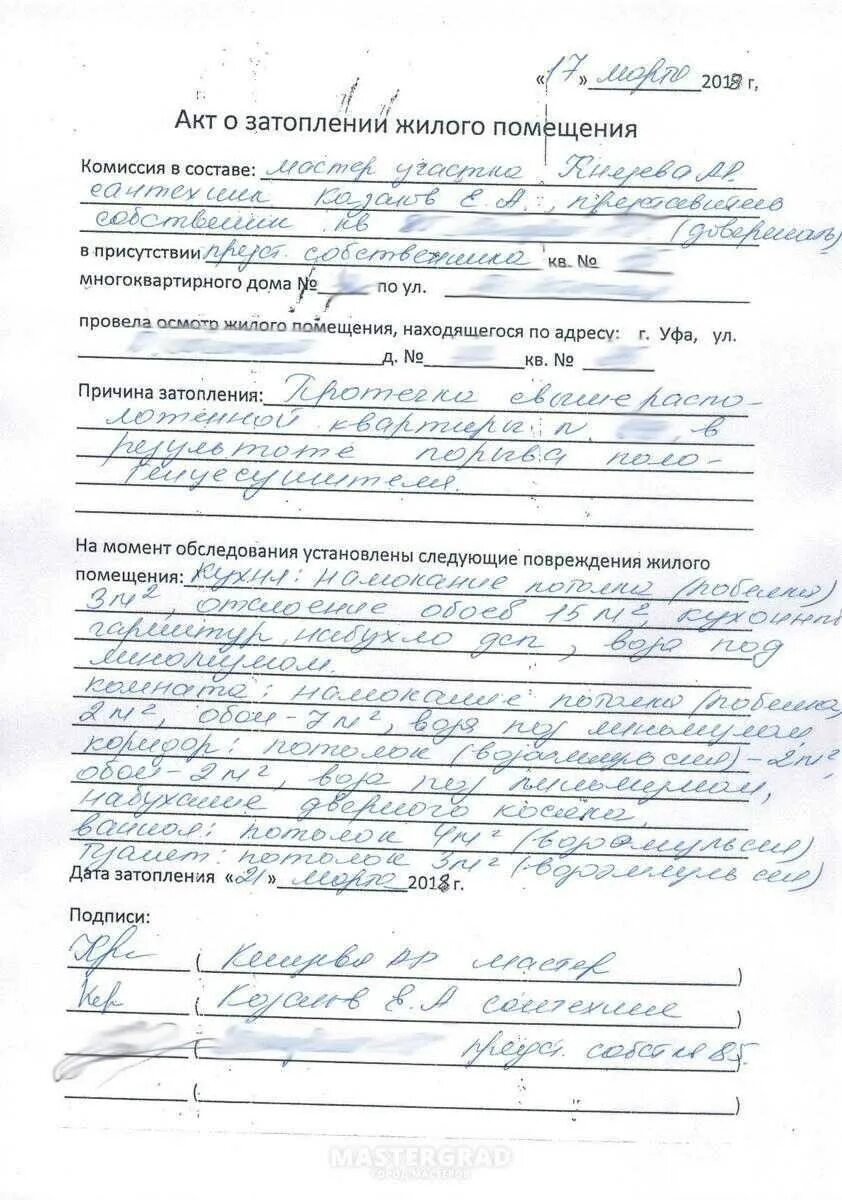 «17» марта 2018 г,
Акт о затоплении жилого помещения
Комиссия в составе: мастер участка Князева А.Р.
сантехник Казаков Е.А., представитель
собственник кв (доверенность)
в присутствии предст. собственника кв. №
многоквартирного дома № по ул.
провела осмотр жилого помещения, находящегося по адресу: г. Уфа, ул.
д. № кв. №
Причина затопления: Протечка свыше распо-
ложенной квартиры п. в
результате порыва поло-
тенцесушителя.
На момент обследования установлены следующие повреждения жилого
помещения: Кухня: намокание потолка (побелка)
3 м², отслоение обоев 15 м², кухонный
гарнитур, набухло дсп, вода под
линолиумом.
комната: намокание потолка (побелка)
2 м², обои - 7 м², вода под линолиумом,
коридор: потолок (водоэмульсия) - 2 м²,
обои - 2 м², вода под линолиумом,
набухание дверного косяка,
ванная: потолок 4 м² (водоэмульсия)
туалет: потолок 3 м² (водоэмульсия)
Дата затопления «21» марта 2018 г.
Подписи:
( Князева АР мастер )
( Казаков Е.А сантехник )
( предст. собств кв 85. )
( )
MASTERGRAD
ГОРОД МАСТЕРОВ